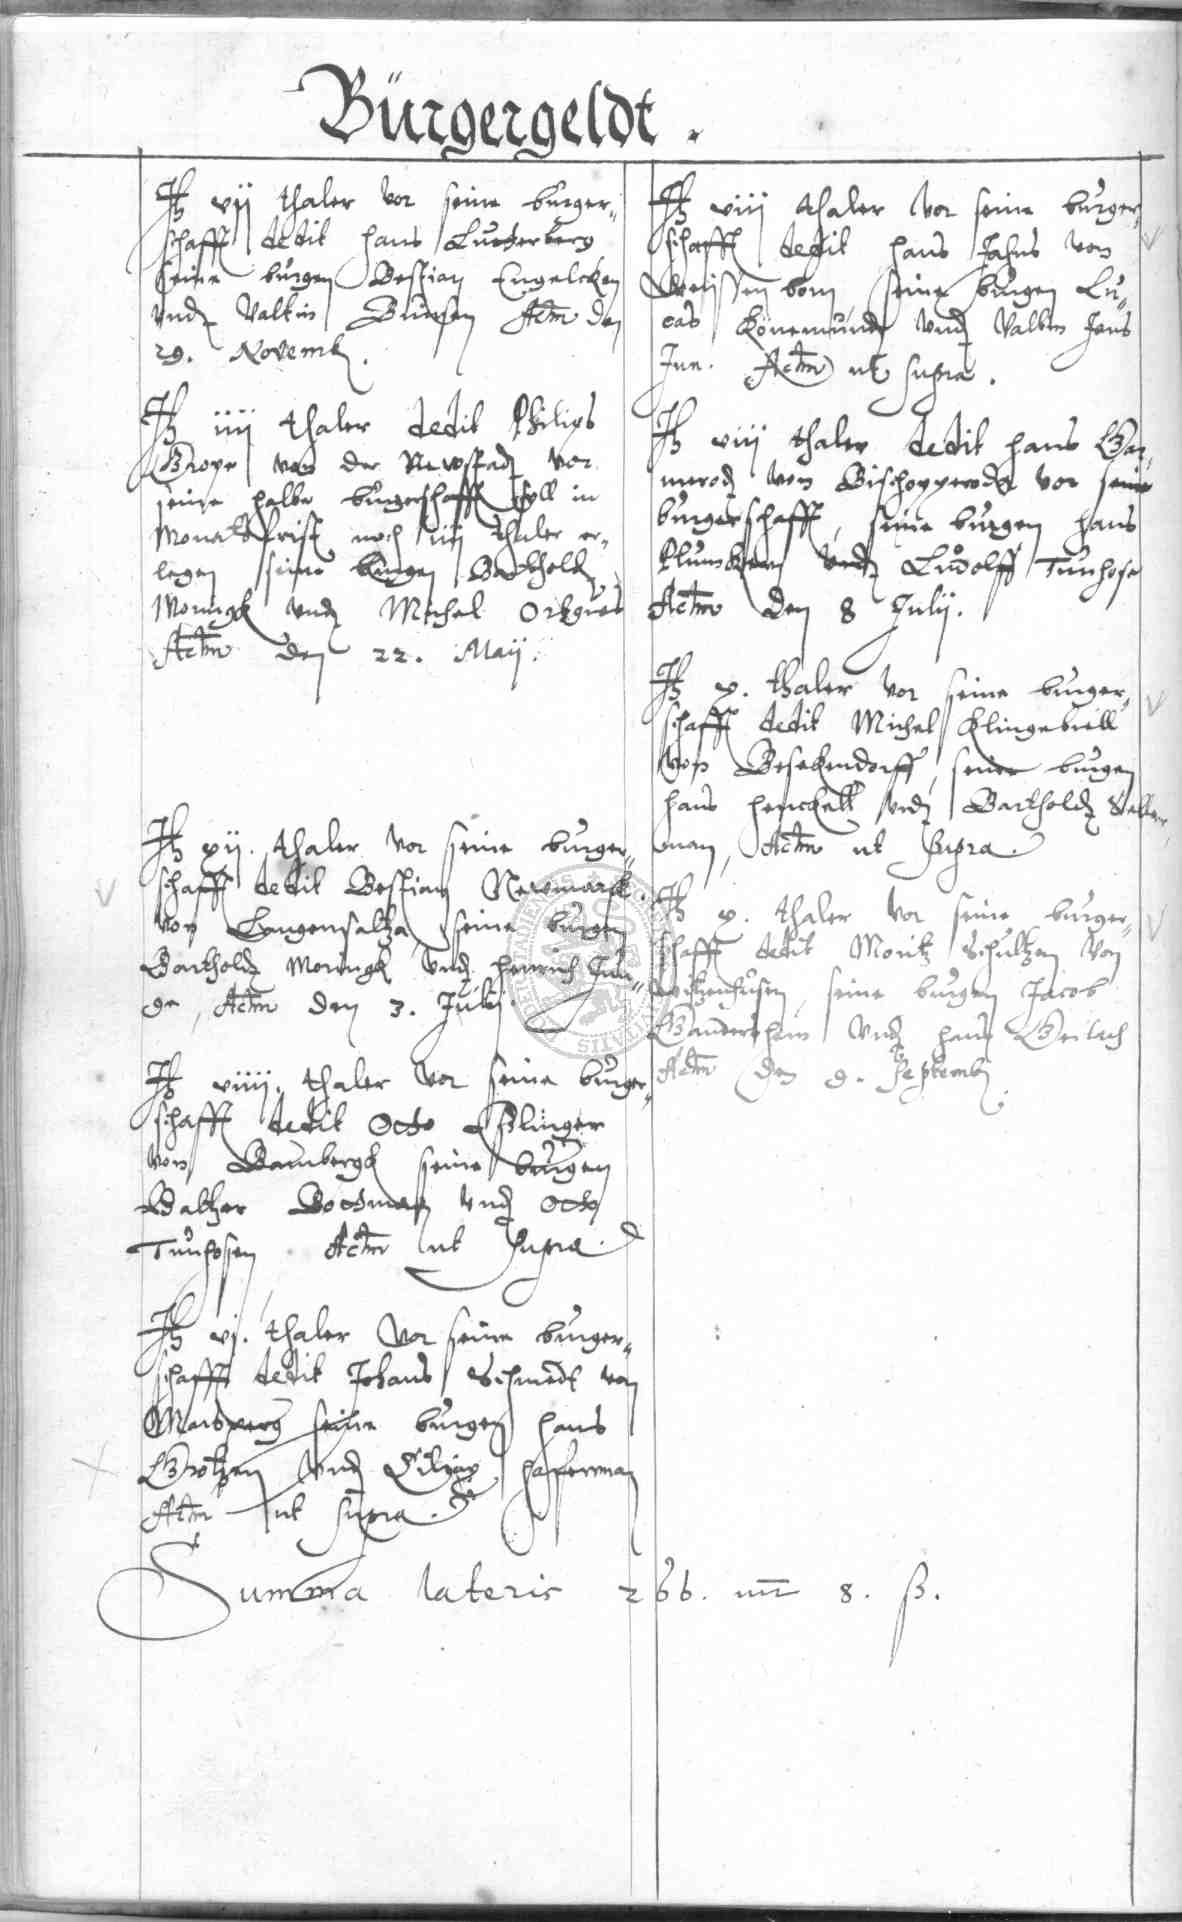 Bürgergeldt.
Jt vij thaler vor seine burger„
schafft dedit hans Lutterberg
seine burgen Bestian Engelcken
vnd Valtin Bursen Actm den
29. Novemb.
Jt iiij thaler dedit Philips
Grope von der Newstad vor
seine halbe burgerschafft soll in
Monats frist noch iiij thaler er„
legen seine burgen Barthold
Moringk vnd Michel
Actm den 22. Maij.
Jt xij. thaler vor seine burger„
schafft dedit Bestian Newmarck
von Langensaltza seine burgen
Barthold Moringk vnd henrich Jun„
ge, Actm den 3. Julij
Jt viiij. thaler vor seine burger„
schafft dedit Otto Eßlinger
von Bambergk seine burgen
Baltzer Bodtman vnd Otto
Tunhosen Actm ut supra.
Jt vj. thaler vor seine burger„
schafft dedit Johans Schmedt von
Marsperg seine burgen hans
Grotzen vnd Cilijax hasferman
Actm ut supra.
Jt viij thaler vor seine burger„
schafft dedit hans Jahns von
Weissenborn seine burgen Lu„
cas Könemund vnd Valtin Jans
Jun. Actm ut supra.
Jt viij thaler dedit hans Wer„
merod von Bischopperode vor seine
burgerschafft, seine burgen hans
Klunckern vnd Ludolff Tunhose
Actm den 8 Julij.
Jt x. thaler vor seine burger„
schafft dedit Michel Klingebiell
von Besekendorff, seine burgen
hans henckell vnd Barthold
man, Actm ut supra.
Jt x. thaler vor seine burger„
schafft dedit Moritz Schultzen von
Witzenhusen, seine burgen Jacob
Gandershem vnd hans Gerlach
Actm den 9. Septemb.
Summa lateris 266. mr 8. ß.